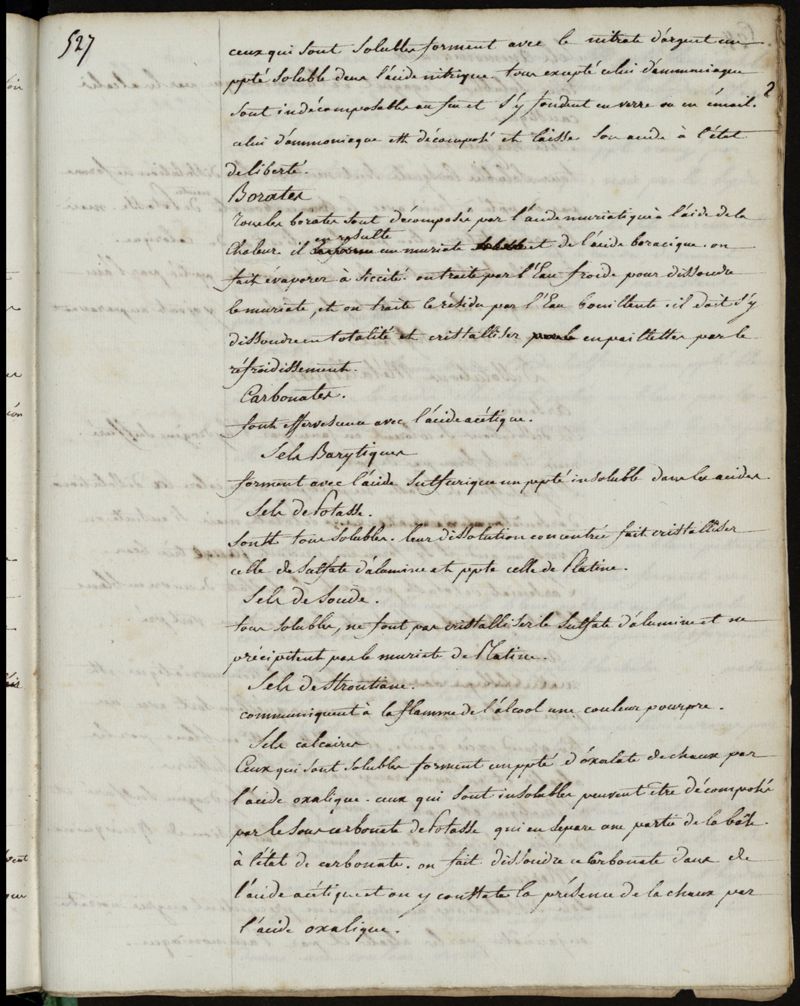 527
2
ceux qui sont solubles forment avec le nitrate d'argent un
ppté soluble dans l'acide nitrique. tous excepté celui d'ammoniaque
sont indécomposables au feu et s'y fondent en verre ou en émail.
celui d'ammoniaque est décomposé et laisse son acide à l'état
de liberté.
Borates
tous les borates sont décomposés par l'acide muriatique à l'aide de la
chaleur il en résulte un muriate et de l'acide boracique. on
fait évaporer à siccité. on traite par l'Eau froide pour dissoudre
le muriate, et on traite le résidu par l'Eau bouillante. il doit s'y
dissoudre en totalité et cristalliser en paillettes par le
refroidissement.
Carbonates.
font effervescence avec l'acide acétique.
Sels Barytiques
forment avec l'acide sulfurique un ppté insoluble dans les acides
Sels de Potasse.
sont tous solubles. leur dissolution concentrée fait cristalliser
celle de sulfate d'alumine et ppte celle de Platine.
Sels de Soude.
tous solubles, ne font pas cristalliser le sulfate d'alumine et ne
précipitent pas le muriate de Platine.
Sels de Strontiane.
communiquent à la flamme de l'alcool une couleur pourpre.
Sels calcaires
Ceux qui sont solubles forment un ppté d'oxalate de chaux par
l'acide oxalique. ceux qui sont insolubles peuvent être décomposés
par le sous carbonate de Potasse qui en separe une partie de la base
à l'état de carbonate. on fait dissoudre ce Carbonate dans de
l'acide acétique et on y constate la présence de la chaux par
l'acide oxalique.